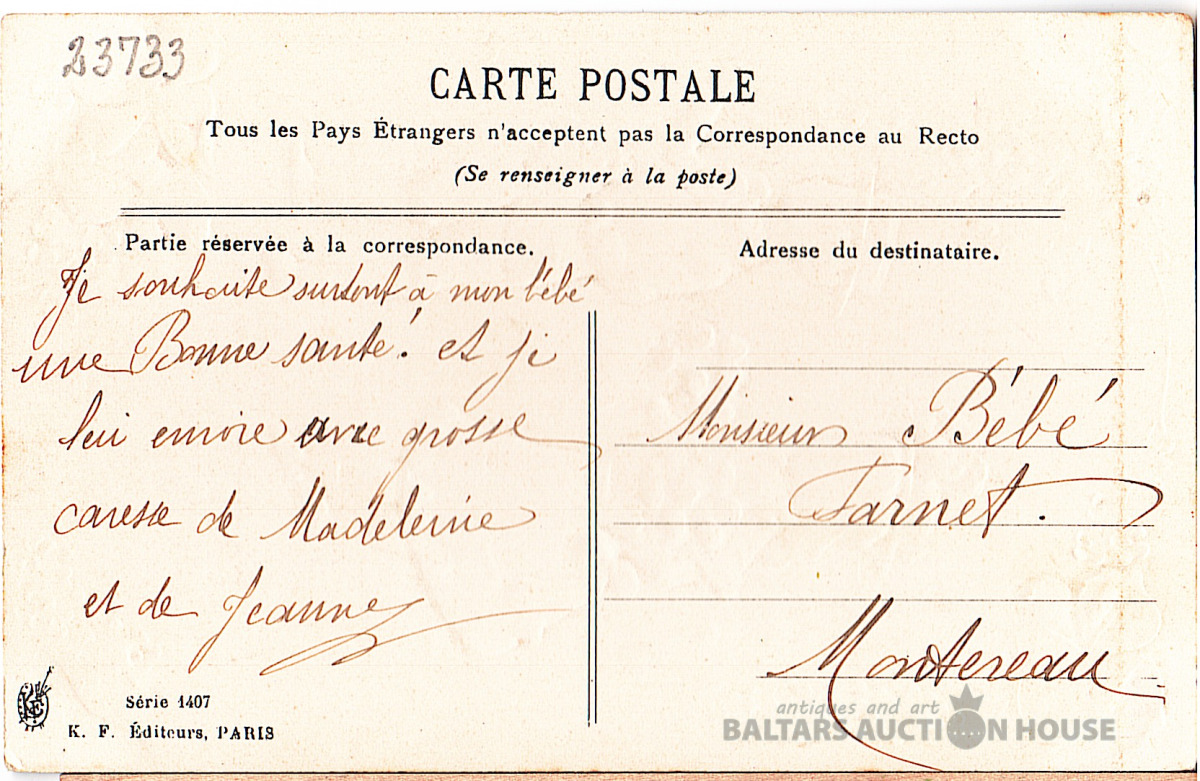 23733
CARTE POSTALE
Tous les Pays Étrangers n'acceptent pas la Correspondance au Recto
(Se renseigner à la poste)
Partie réservée à la correspondance.
Je souhaite surtout à mon bébé
une Bonne santé! et je
lui envoie avec grosse
caresse de Madeleine
et de Jeanne
Série 1407
K. F. Éditeurs, PARIS
Adresse du destinataire.
Monsieur Bébé
Farnet.
Montereau
antiques and art
BALTARS AUCTION HOUSE